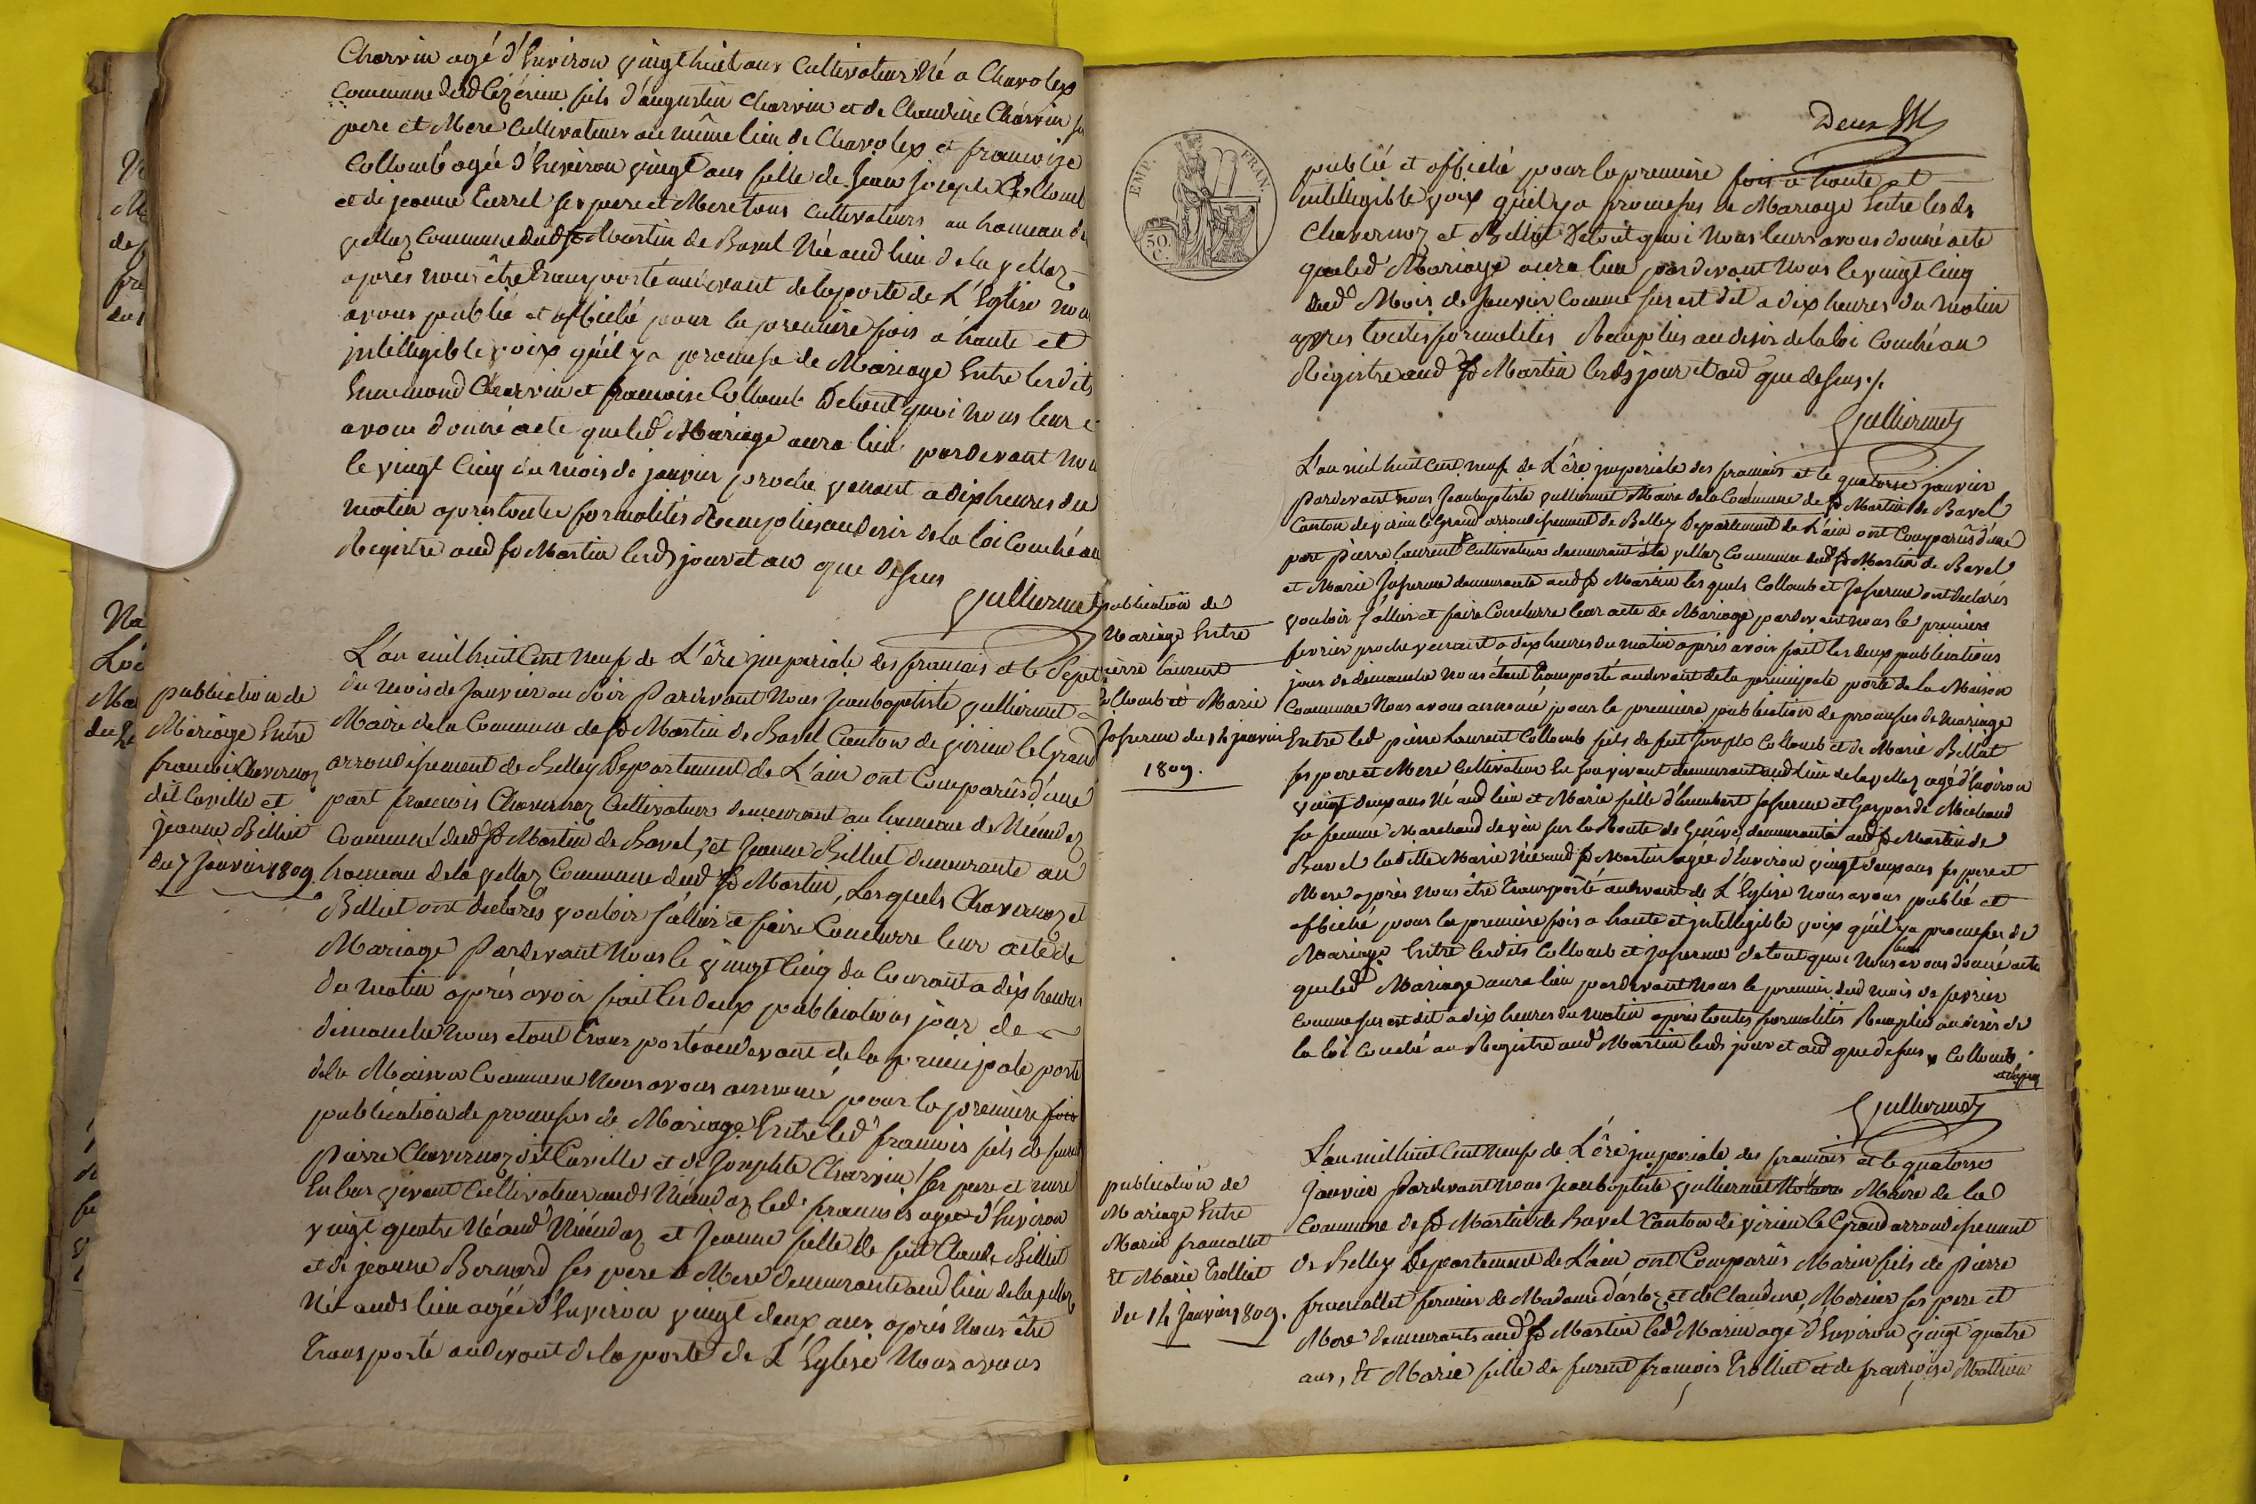 Charvin agé d'Environ vingt huit ans Cultivateur Né a Chavolex
Commune dud Cézérieu fils d'augustin Charvin et de Claudine Charvin
pere et Mere Cultivateurs au même lieu de Chavolex et francoise
Collomb agée d'Environ vingt ans fille de Jean Joseph Collomb
et de jeanne Curvel ses pere et Mere tous Cultivateurs au hameau de
vellaz Commune dud St Martin de Bavel Née aud lieu de la vellaz
apres nous être transporté audevant de la porte de L'Eglise nous
avons publié et affiché pour la premiere fois a haute et
intelligible voix qu'il y a promesse de Mariage Entre lesdits
Ennemond Charvin et francoise Collomb De tout quoi Nous leur
avons donné acte queled Mariage aura lieu pardevant Nous
le vingt Cinq du mois de janvier proche venant a dix heures du
matin apres toutes formalités Remplies au desir de la loi Couché au
Registre aud St Martin lesds jour et an que dessus
Gulliermet
publication de
Mariage Entre
francois Chavernoz
dit Caville et
jeanne Billiet
du 7 janvier 1809.
L'an mil huit Cent Neuf de L'êre imperiale des francais et le Sept
du mois de Janvier au Soir Pardevant Nous Jeanbaptiste Gulliermet
Maire de la Commune de St Martin de Bavel Canton de virieu le Grand
arrondissement de Belley Departement de L'ain ont Comparûs d'une
part francois Chavernoz Cultivateur demeurant au hameau de
Commune dud St Martin de Bavel, et Jeanne Billiet demeurante au
hameau de la vellaz Commune dud St Martin, Lesquels Chavernoz et
Billiet ont declarés vouloir s'allier et faire Conclurre leur acte de
Mariage Pardevant Nous le vingt Cinq du Courant a dix heures
du Matin aprés avoir fait les deux publications jour de
dimanche nous etant transporté audevant de la principale porte
de la Maison Commune Nous avons annoncé pour la premiere fois
publication de promesses de Mariage Entre led francois fils de furent
Pierre Chavernoz dit Caville et de Josephte Charvin ses pere et mere
En leur vivant Cultivateurs auds led francois agée d'Environ
vingt quatre Né aud et Jeanne fille de feu Claude Billiet
et de jeanne Bernard ses pere et Mere demeurante aud lieu de la vellaz
Née auds lieu agée d'Environ vingt deux ans aprés Nous être
transporté audevant de la porte de L'Eglise Nous avons
Deux
EMP. FRAN.
50 C.
publié et affiché pour la premiere fois a haute et
intelligible voix qu'il y a promesses de Mariage Entre lesds
Chavernoz et Billiet De tout quoi Nous leurs avons donné acte
queled Mariage aura lieu pardevant Nous le vingt Cinq
dud Mois de Janvier Comme sus est dit a dix heures du matin
apres toutes formalités Remplies au desir de la loi Couché au
Registre aud St Martin lesds jour et an que dessus ./.
Gulliermet
publication de
Mariage Entre
pierre laurent
Collomb et Marie
Joserme du 14 janvier
1809.
L'an mil huit Cent neuf de L'êre imperiale des francais et le quatorse janvier
Pardevant nous Jeanbaptiste Gulliermet Maire de la Commune de St Martin de Bavel
Canton de virieu le Grand arrondissement de Belley Departement de L'ain ont Comparûs d'une
part Pierre laurent Cultivateur demeurant a la vellaz Commune dud St Martin de Bavel
et Marie Joserme demeurante aud St Martin lesquels Collomb et Joserme ont declarés
vouloir s'allier et faire Conclurre leur acte de Mariage pardevant nous le premier
fevrier proche venant a dix heures du matin aprés avoir fait les deux publications
jour de dimanche Nous étant transporté audevant de la principale porte de la Maison
Commune Nous avons annoncé pour la premiere publication de promesses de mariage
Entre led pierre Laurent Collomb fils de feu Joseph Collomb et de Marie Billiat
ses pere et Mere Cultivateur En son vivant demeurant aud lieu de la vellaz agé d'Environ
vingt deux ans Né aud lieu et Marie fille d'humbert Joserme et Gasparde Michaud
sa femme Marchand de vin sur la Route de Genêve, demeurante aud St Martin de
Bavel ladite Marie Née aud St Martin agée d'Environ vingt deux ans ses pere et
Mere aprés nous être transporté audevant de L'Eglise nous avons publié et
affiché pour la premiere fois a haute et jntelligible voix qu'il y a promesses de
Mariage Entre lesdits Collomb et joserme de tout quoi Nous leur avons donné acte
queled Mariage aura lieu pardevant nous le premier dud mois de fevrier
Comme sus est dit a dix heures du matin aprés toutes formalités Remplies au desir de
la loi Couché au Registre aud Martin lesds jour et an que dessus x Collomb
Gulliermet
publication de
Mariage Entre
Marin francallet
Et Marie Trolliet
du 14 Janvier 1809.
L'an mil huit Cent Neuf de L'êre imperiale des francais et le quatorse
Janvier Pardevant nous Jeanbaptiste Gulliermet Notaire Maire de la
Commune de St Martin de Bavel Canton de virieu le Grand arrondissement
de Belley Departement de L'ain ont Comparûs Marin fils de Pierre
francallet fermier de Madame d'arloz et de Claudine Mercier ses pere et
Mere demeurants aud St Martin led Marin agé d'Environ vingt quatre
ans, Et Marie fille de furent francois Trolliet et de francoise Mathieu